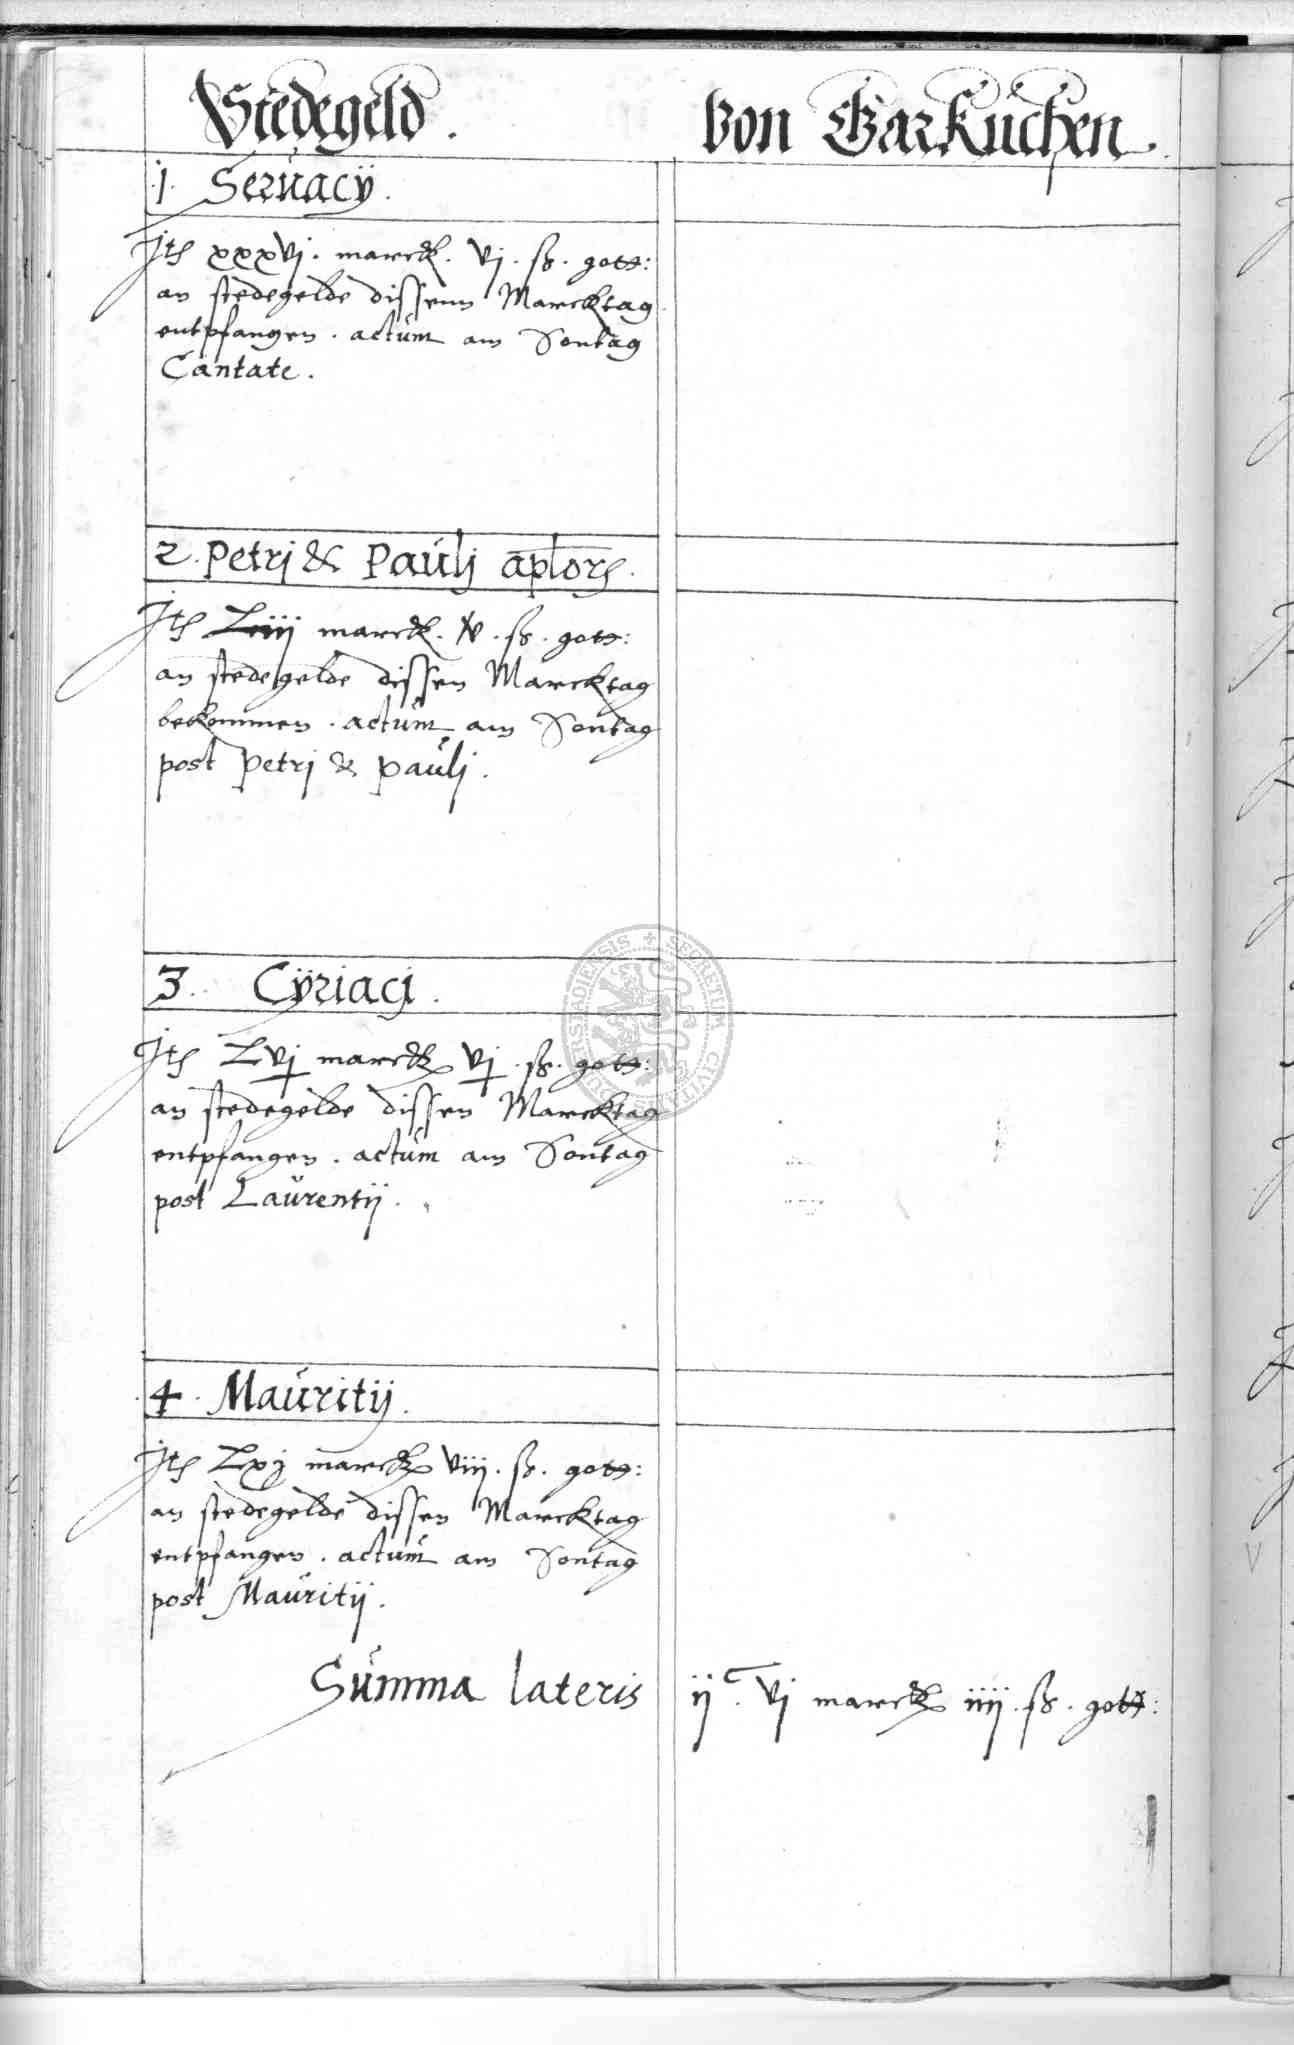 Stedegeld . Von GarKuchen .
.1. Seruacÿ .
Jts xxxvj . marck . vj . ß . gott:
an stedegelde dissenn Marcktag
entpfangen . actum am Sontag
Cantate .
2 . Petrj & Paulj aplors .
Jts Liiij marck . v . ß . gott:
an stedegelde dissen Marcktag
bekommen . actum am Sontag
post petrj & paulj .
3 . Cÿriacj .
Jts Lvj marck vj . ß . gott:
an stedegelde dissen Marcktag
entpfangen . actum am Sontag
post Laurentij .
.4 . Mauritij .
Jts Lxj marck viij . ß . gott:
an stedegelde dissen Marcktag
entpfangen . actum am Sontag
post Mauritij .
Summa lateris ijc . vj marck iiij . ß . gott:
SECRETUM CIVITATIS